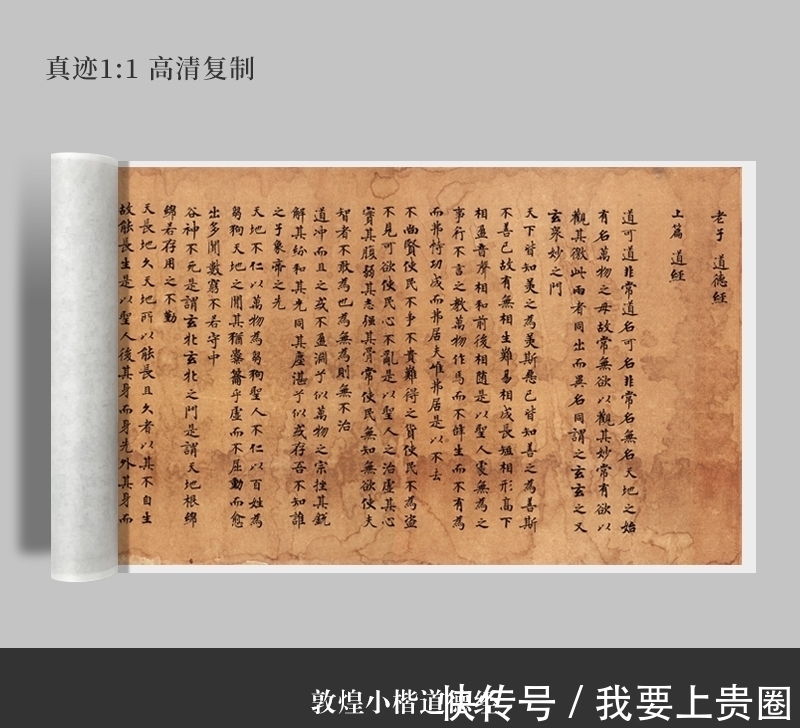 真迹1:1 高清复制
老子 道德經
上篇 道經
道可道非常道名可名非常名無名天地之始
有名萬物之母故常無欲以觀其妙常有欲以
觀其徼此兩者同出而異名同謂之玄玄之又
玄眾妙之門
天下皆知美之為美斯惡已皆知善之為善斯
不善已故有無相生難易相成長短相形高下
相盈音聲相和前後相隨是以聖人處無為之
事行不言之教萬物作焉而不辭生而不有為
而弗恃功成而弗居夫唯弗居是以不去
不尚賢使民不爭不貴難得之貨使民不為盜
不見可欲使民心不亂是以聖人之治虛其心
實其腹弱其志强其骨常使民無知無欲使夫
智者不敢為也為無為則無不治
道冲而且之或不盈淵乎似萬物之宗挫其銳
解其紛和其光同其塵湛乎似或存吾不知誰
之子象帝之先
天地不仁以萬物為芻狗聖人不仁以百姓為
芻狗天地之間其猶橐籥乎虛而不屈動而愈
出多聞數窮不若守中
谷神不死是謂玄牝玄牝之門是謂天地根綿
綿若存用之不勤
天長地久天地所以能長且久者以其不自生
故能長生是以聖人後其身而身先外其身而
敦煌小楷道德经
快传号 / 我要上贵圈